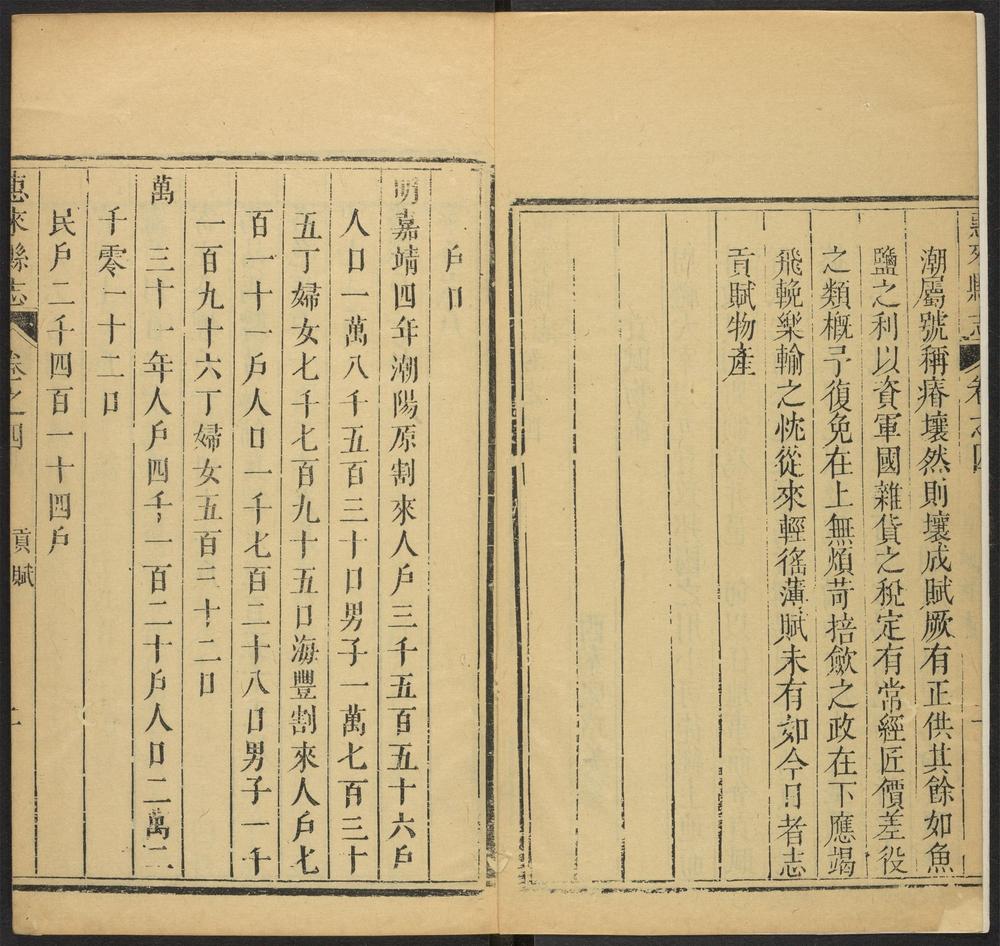 惠來縣志 卷之四 一
潮屬號稱瘠壤然則壤成賦厥有正供其餘如魚
鹽之利以資軍國雜貨之稅定有常經匠價差役
之類概予復免在上無煩苛掊斂之政在下應竭
飛輓樂輸之忱從來輕徭薄賦未有如今日者志
貢賦物產
戶口
明嘉靖四年潮陽原割來人戶三千五百五十六戶
人口一萬八千五百三十口男子一萬七百三十
五丁婦女七千七百九十五口海豐割來人戶七
百一十一戶人口一千七百二十八口男子一千
一百九十六丁婦女五百三十二口
萬 三十一年人戶四千一百二十戶人口二萬二
千零一十二口
民戶二千四百一十四戶
惠來縣志 卷之四 貢賦 二